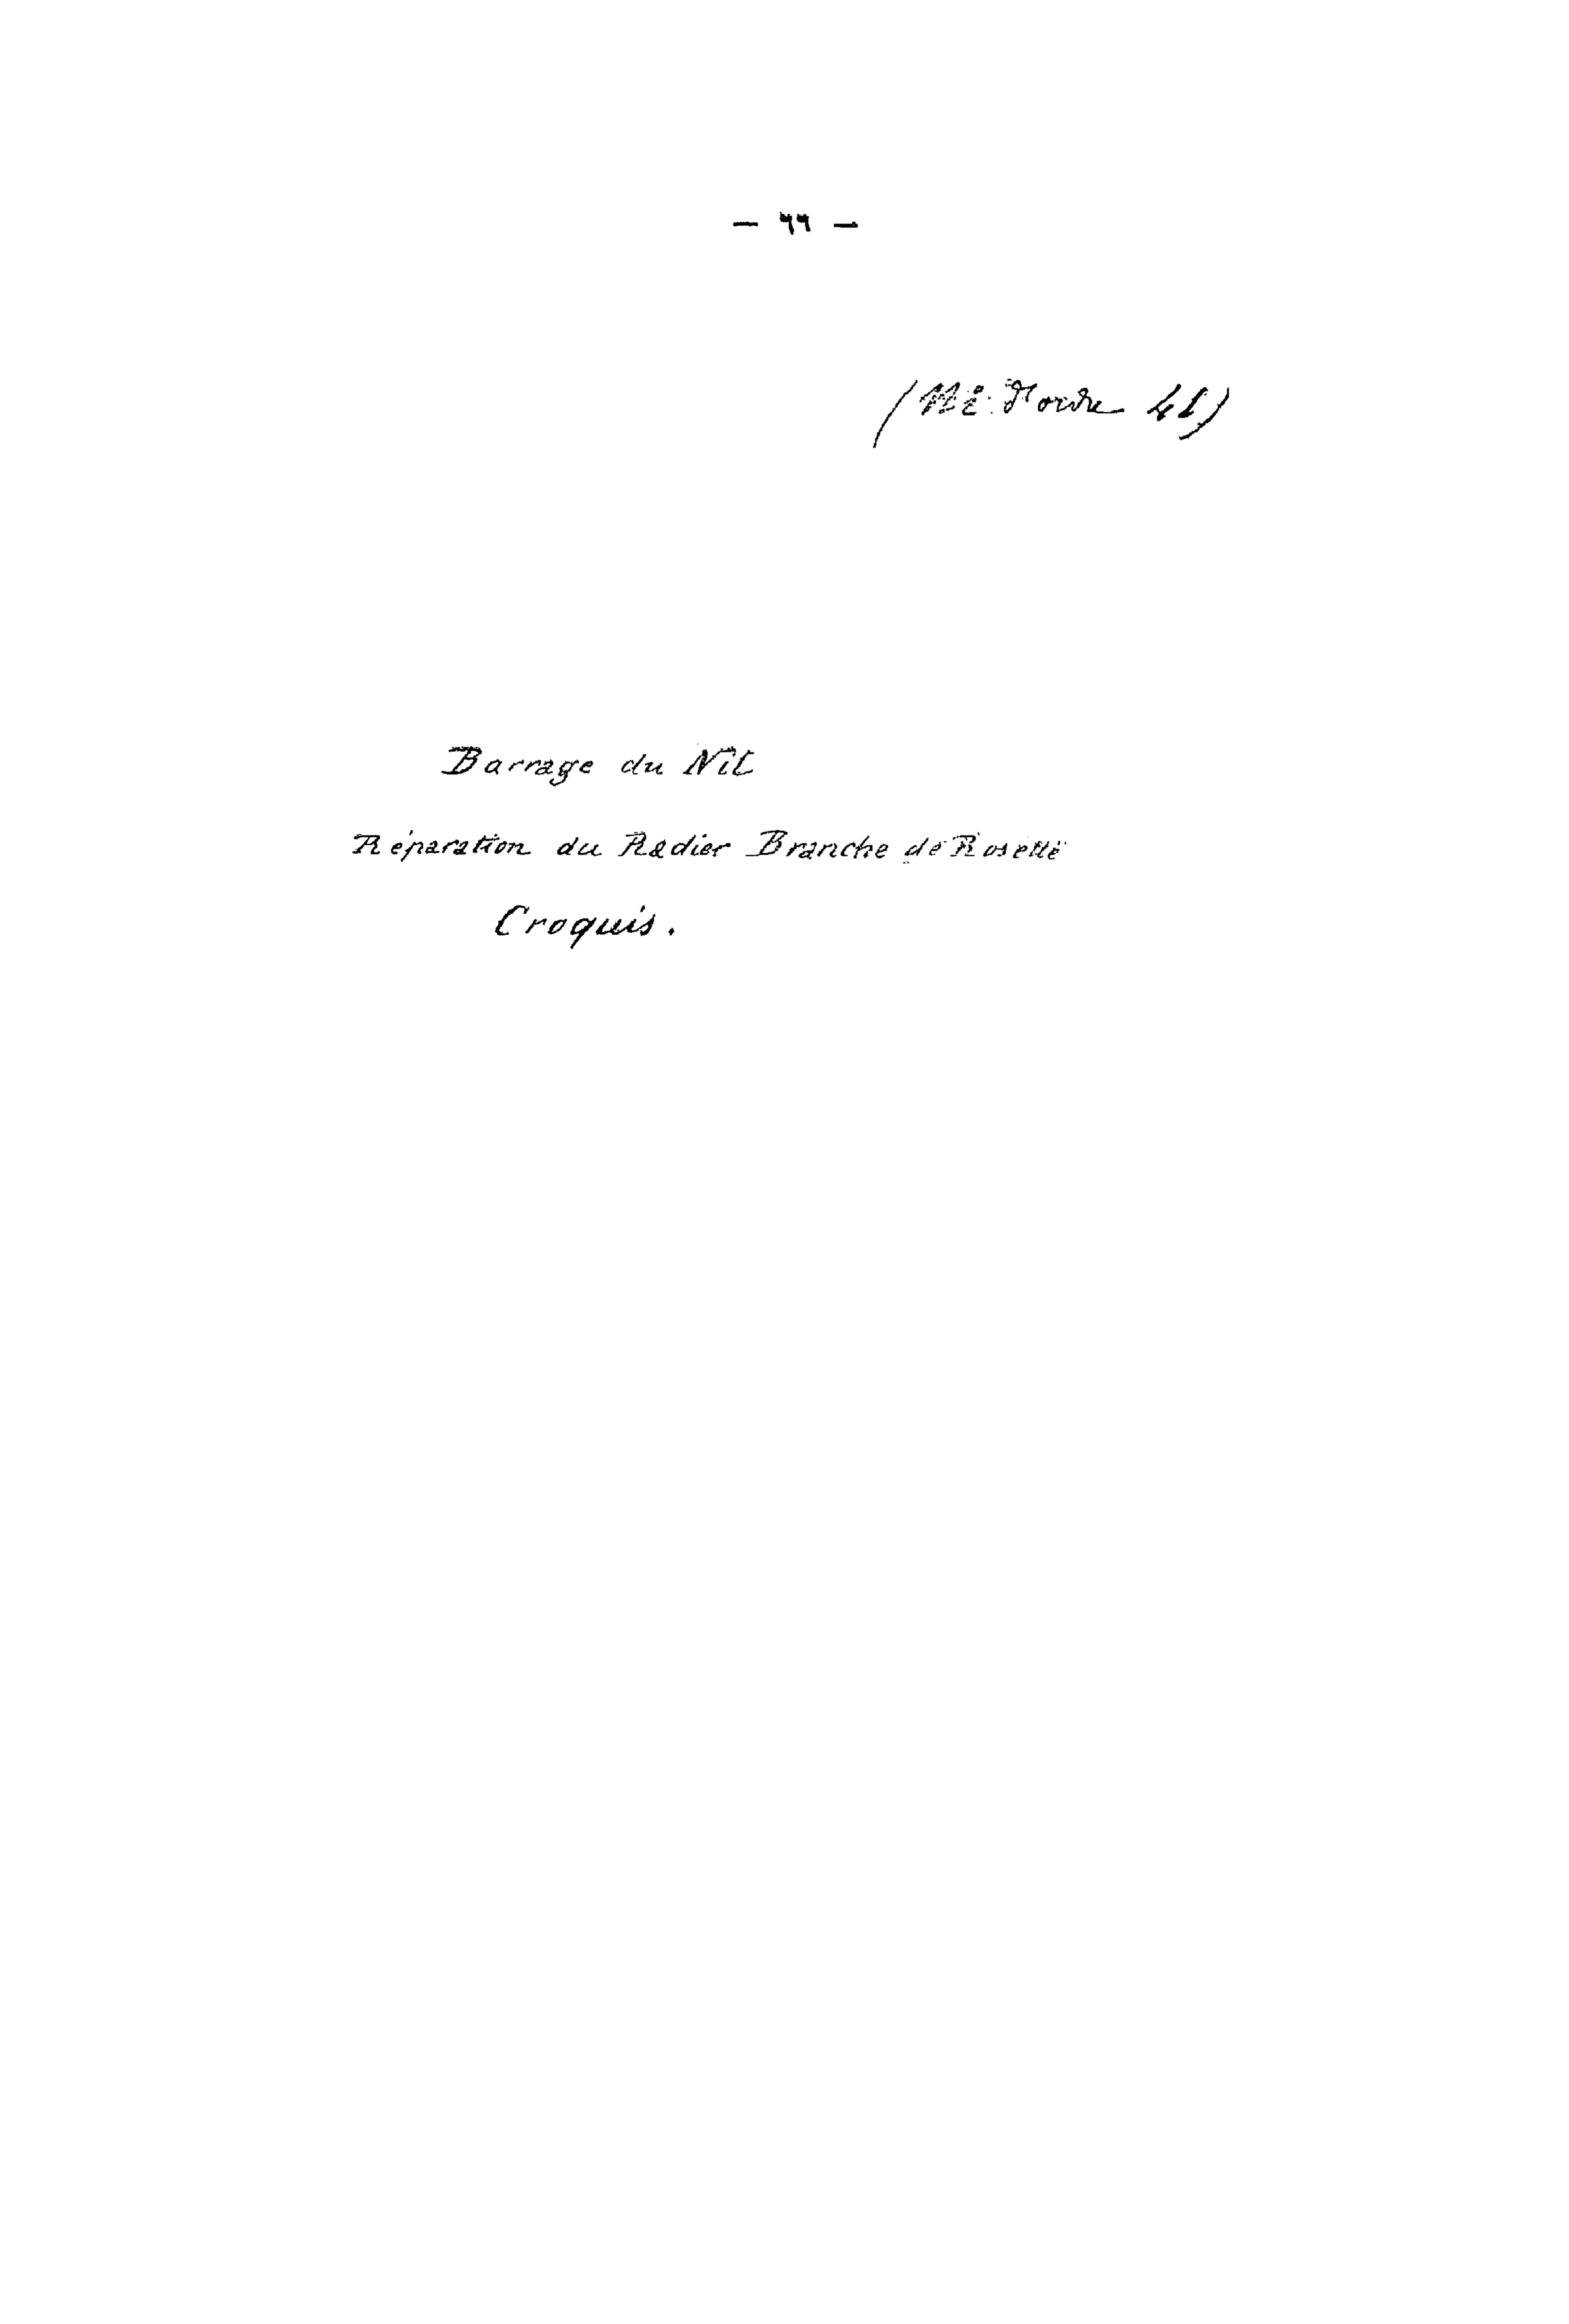 — ٦٦ —
(Nº d'ordre 41)
Barrage du Nil
Réparation du Radier Branche de Rosette
Croquis.